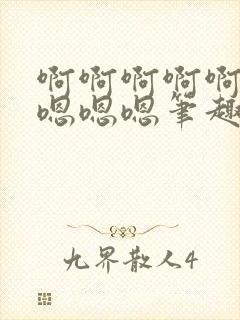 啊啊啊啊啊
嗯嗯嗯笔趣
九界散人4